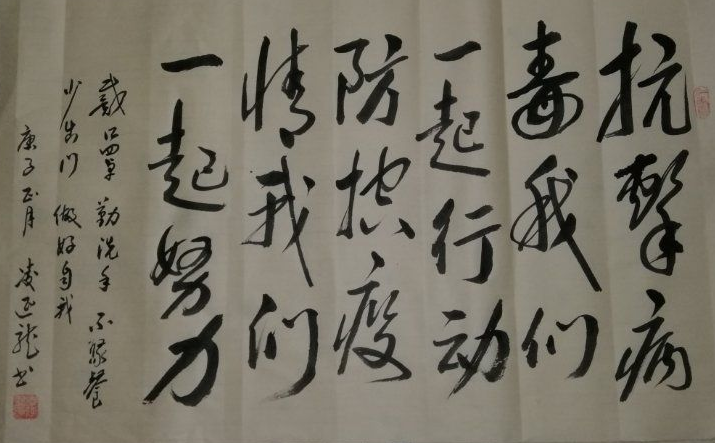 抗擊病
毒我们
一起行动
防控疫
情我们
一起努力
戴口罩 勤洗手 不聚餐
少出门 做好自我
庚子正月 凌龙书